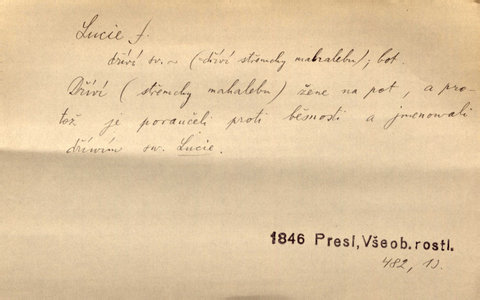 Lucie f.
dříví sv. ~ (= dříví střemchy mahalebu); bot.
Dříví (střemchy mahalebu) žene na pot, a pro-
tož je poraučeli proti běsnosti a jmenovali
dřívím sv. Lucie.
1846 Presl, Všeob. rostl.
482, 1).